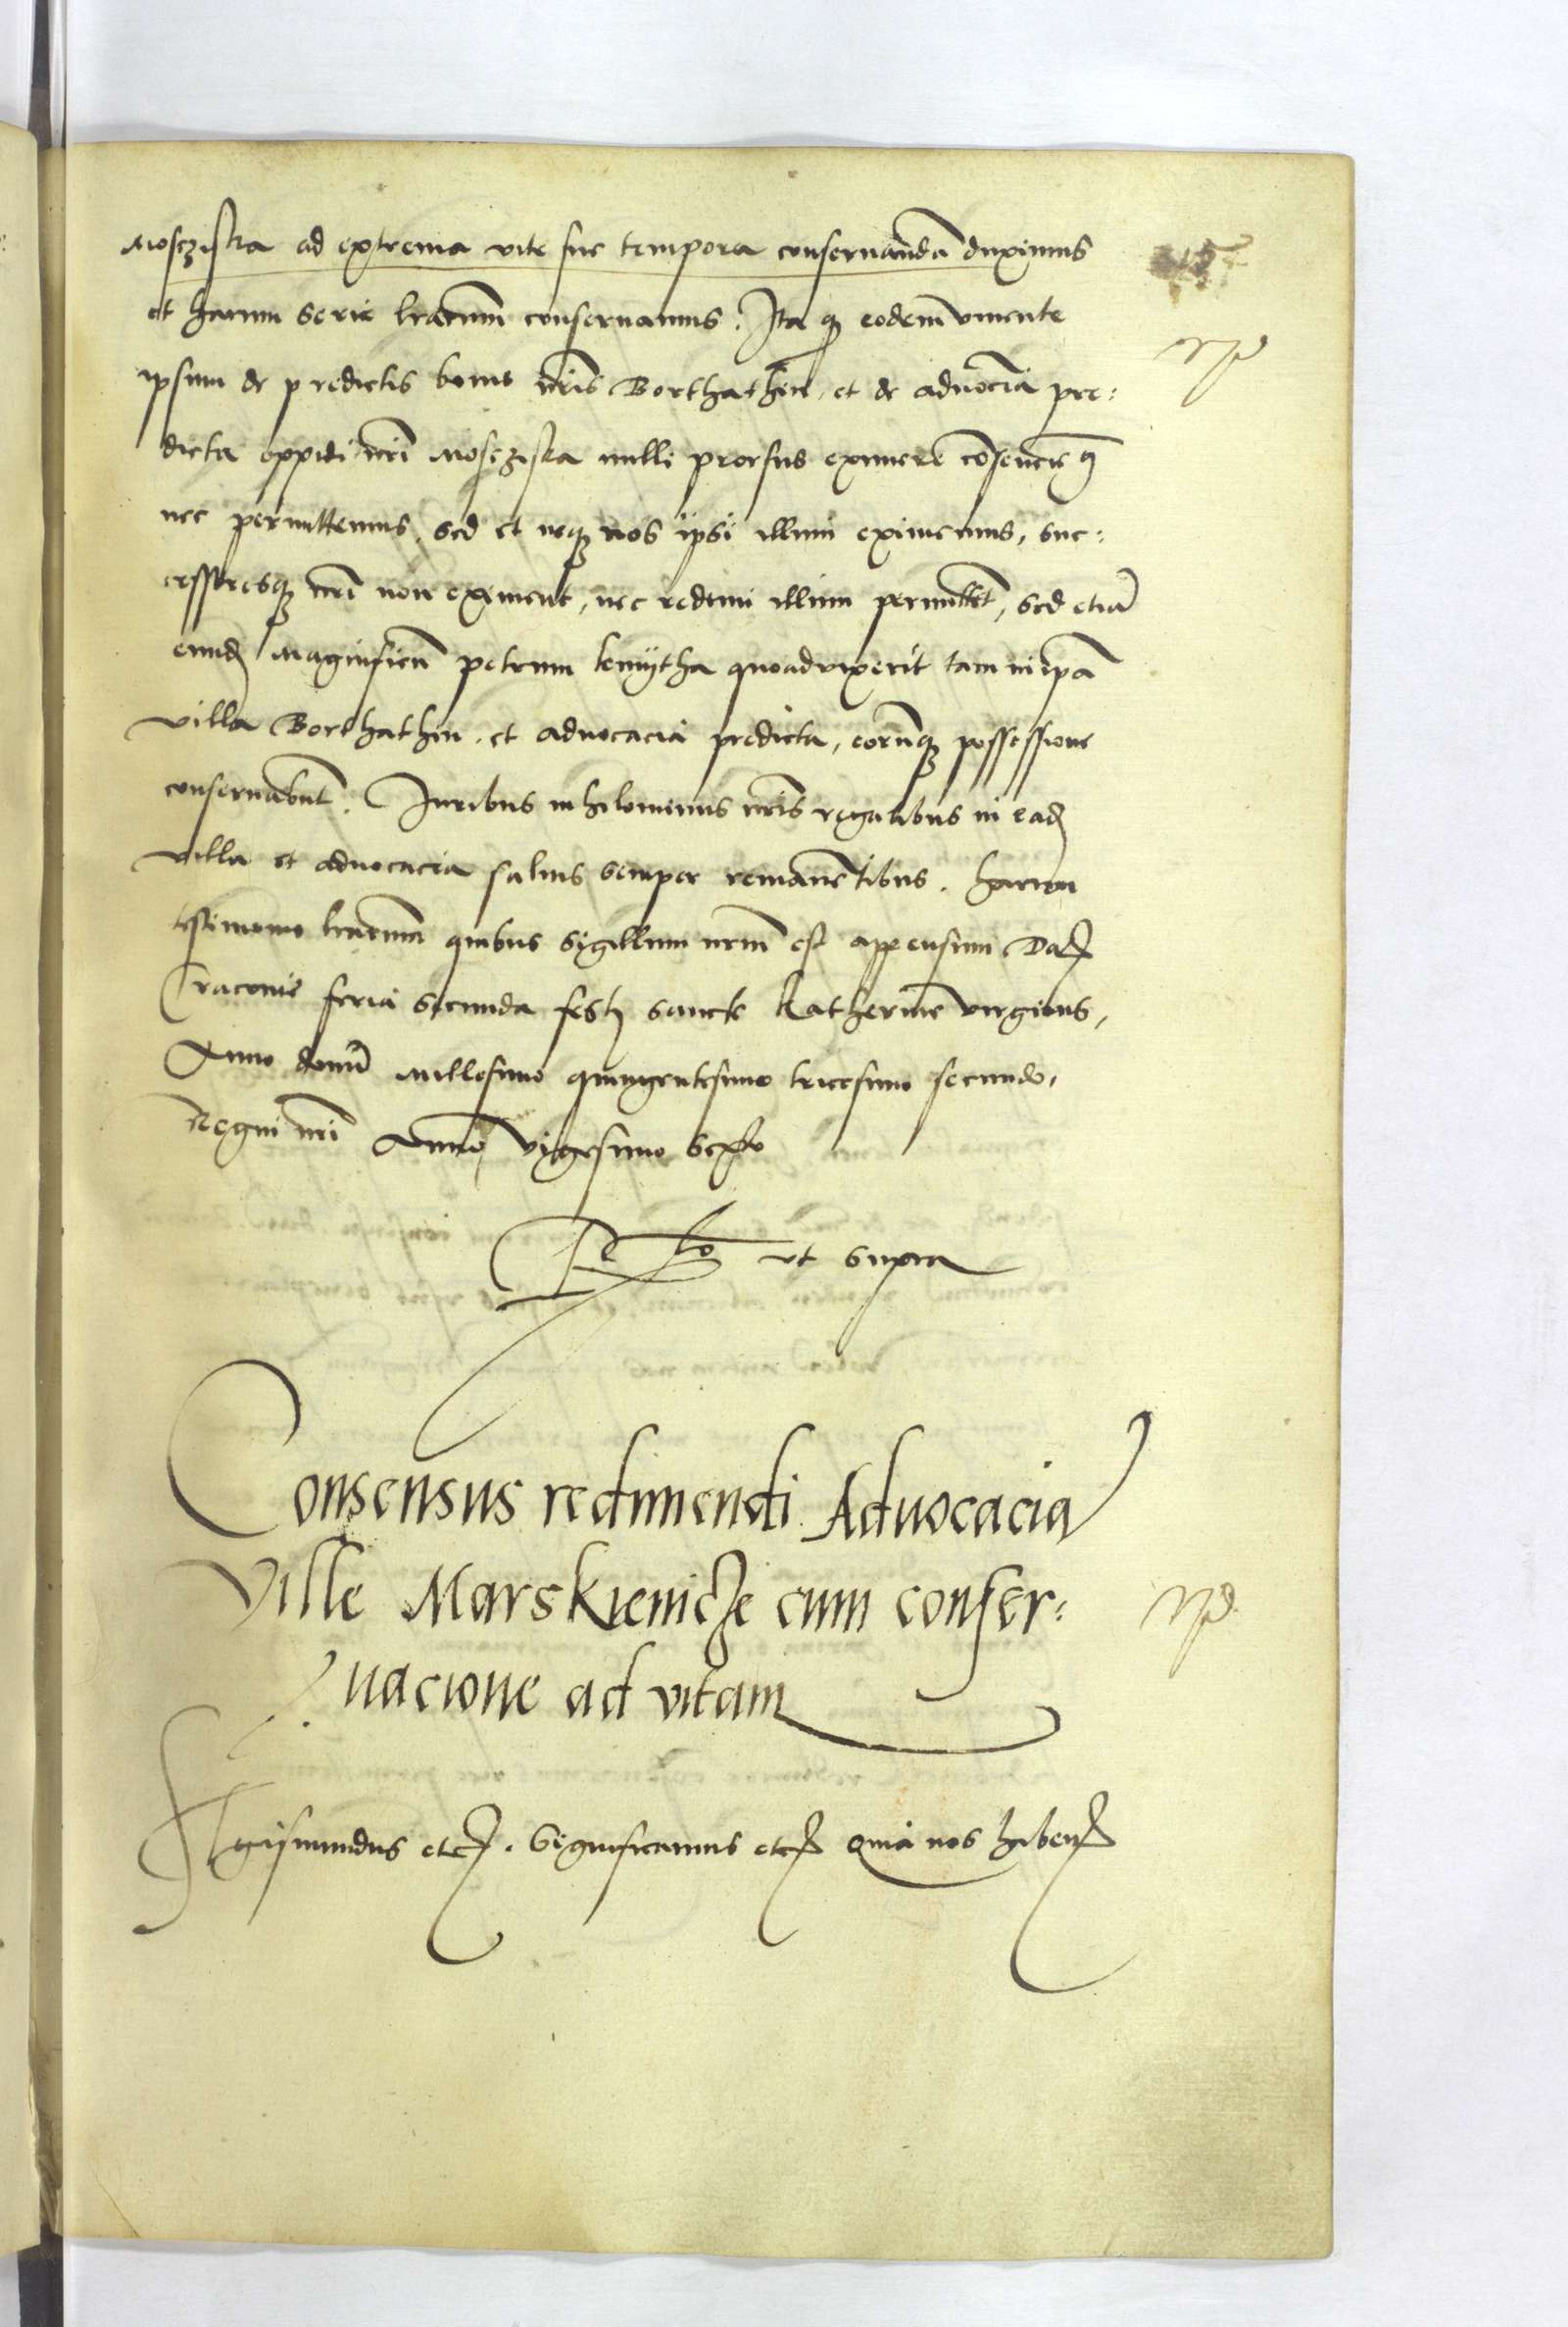 Moscziska ad extrema vite sue tempora conservandũ duximus
et harum serie lrarum conservamus. Ita q̃ eodem vivente
ipsum de predictis bonis nris Borthathin, et de advocia pre:
dicta oppidi nri Mosziska nulli prorsus eximere cõsenciemq̃
nec permittemus, sed et neq̃ nos ipsi illum eximemus, suc:
cessoresq̃ nri non eximent, nec redimi illum permittẽt, sed etiã
eundẽ Magnificũ petrum kmytha quoad vixerit tam in ipa
villa Borthathin, et advocacia predicta, eorũq̃ possessione
conservabũt. Iuribus nihilominus nris regalibus in eadẽ
villa et advocacia salvis semper remanentibus. harum
testimonio lrarum quibus sigillum nrm est appensum Daẽ
Cracovie feria secunda festi sancte Katherine virginis,
Anno domi millesimo quingentesimo tricesimo secundo,
Regni nri Anno vigesimo sexto
Relõ ut supra
Consensus redimendi Advocacia
Ville Marskieniche cum conser:
vacione ad vitam
Sigismundus etc. Significamus etc Quia nos haben̄